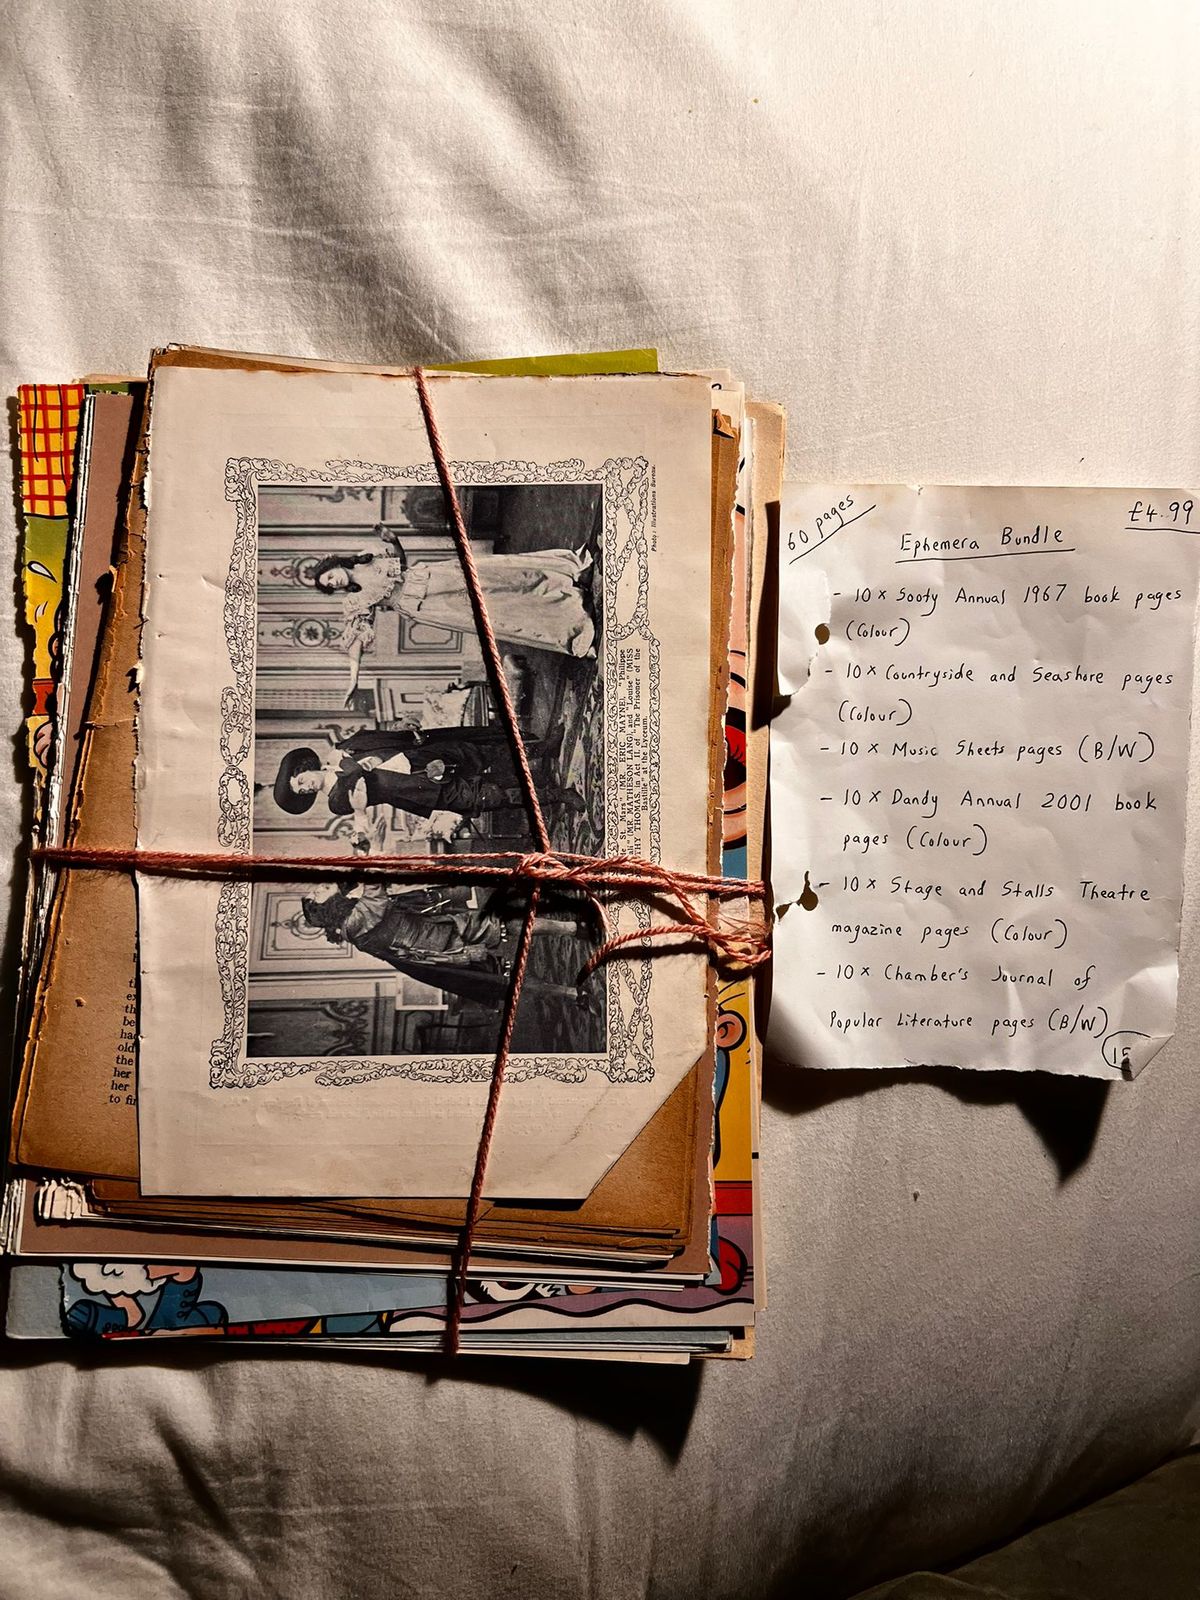 60 pages
£4.99
Ephemera Bundle
- 10 x Sooty Annual 1967 book pages
(Colour)
- 10 x Countryside and Seashore pages
(Colour)
- 10 x Music Sheets pages (B/W)
- 10 x Dandy Annual 2001 book
pages (Colour)
- 10 x Stage and Stalls Theatre
magazine pages (Colour)
- 10 x Chamber's Journal of
Popular Literature pages (B/W)
Photo: Illustrations Bureau.
St. Mars" MR. ERIC MAYNE, "Philippe
(MR. MATHESON LANG) and "Louise" (MISS
THOMAS, in Act II. of "The Prisoner of the
Bastille" at the Lyceum.
be
old
the
her
her